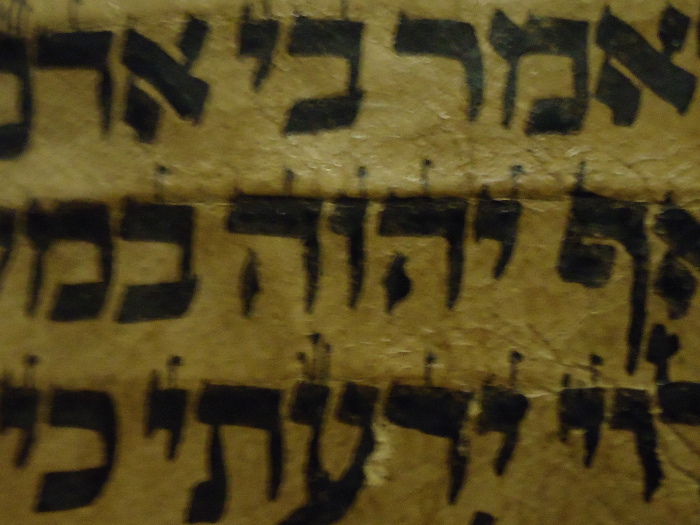 אמר בי אד
אף יהוה במ
לוי ידעתי כי